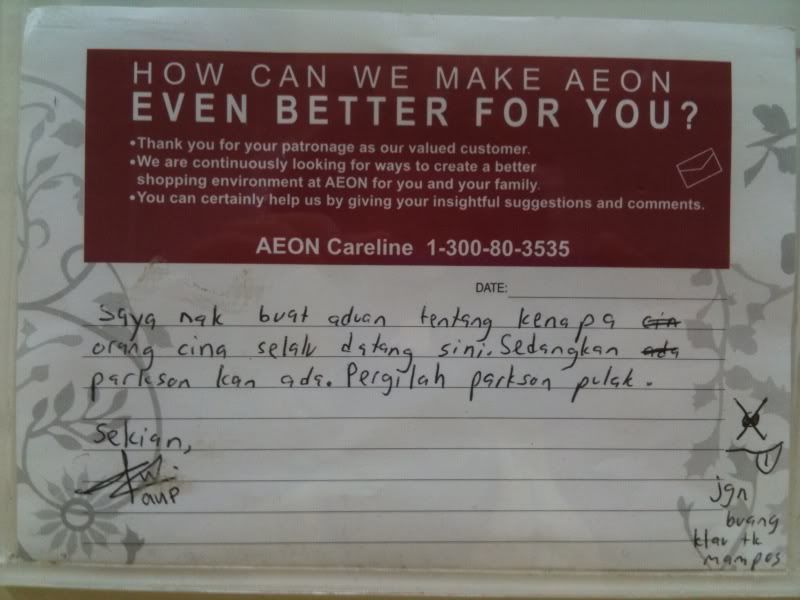 HOW CAN WE MAKE AEON
EVEN BETTER FOR YOU?
•Thank you for your patronage as our valued customer.
•We are continuously looking for ways to create a better
shopping environment at AEON for you and your family.
•You can certainly help us by giving your insightful suggestions and comments.
AEON Careline 1-300-80-3535
DATE:
Saya nak buat aduan tentang kenapa cin
orang cina selalu datang sini. Sedangkan ada
parkson kan ada. Pergilah parkson pulak.
Sekian,
jgn
buang
klau tk
mampos